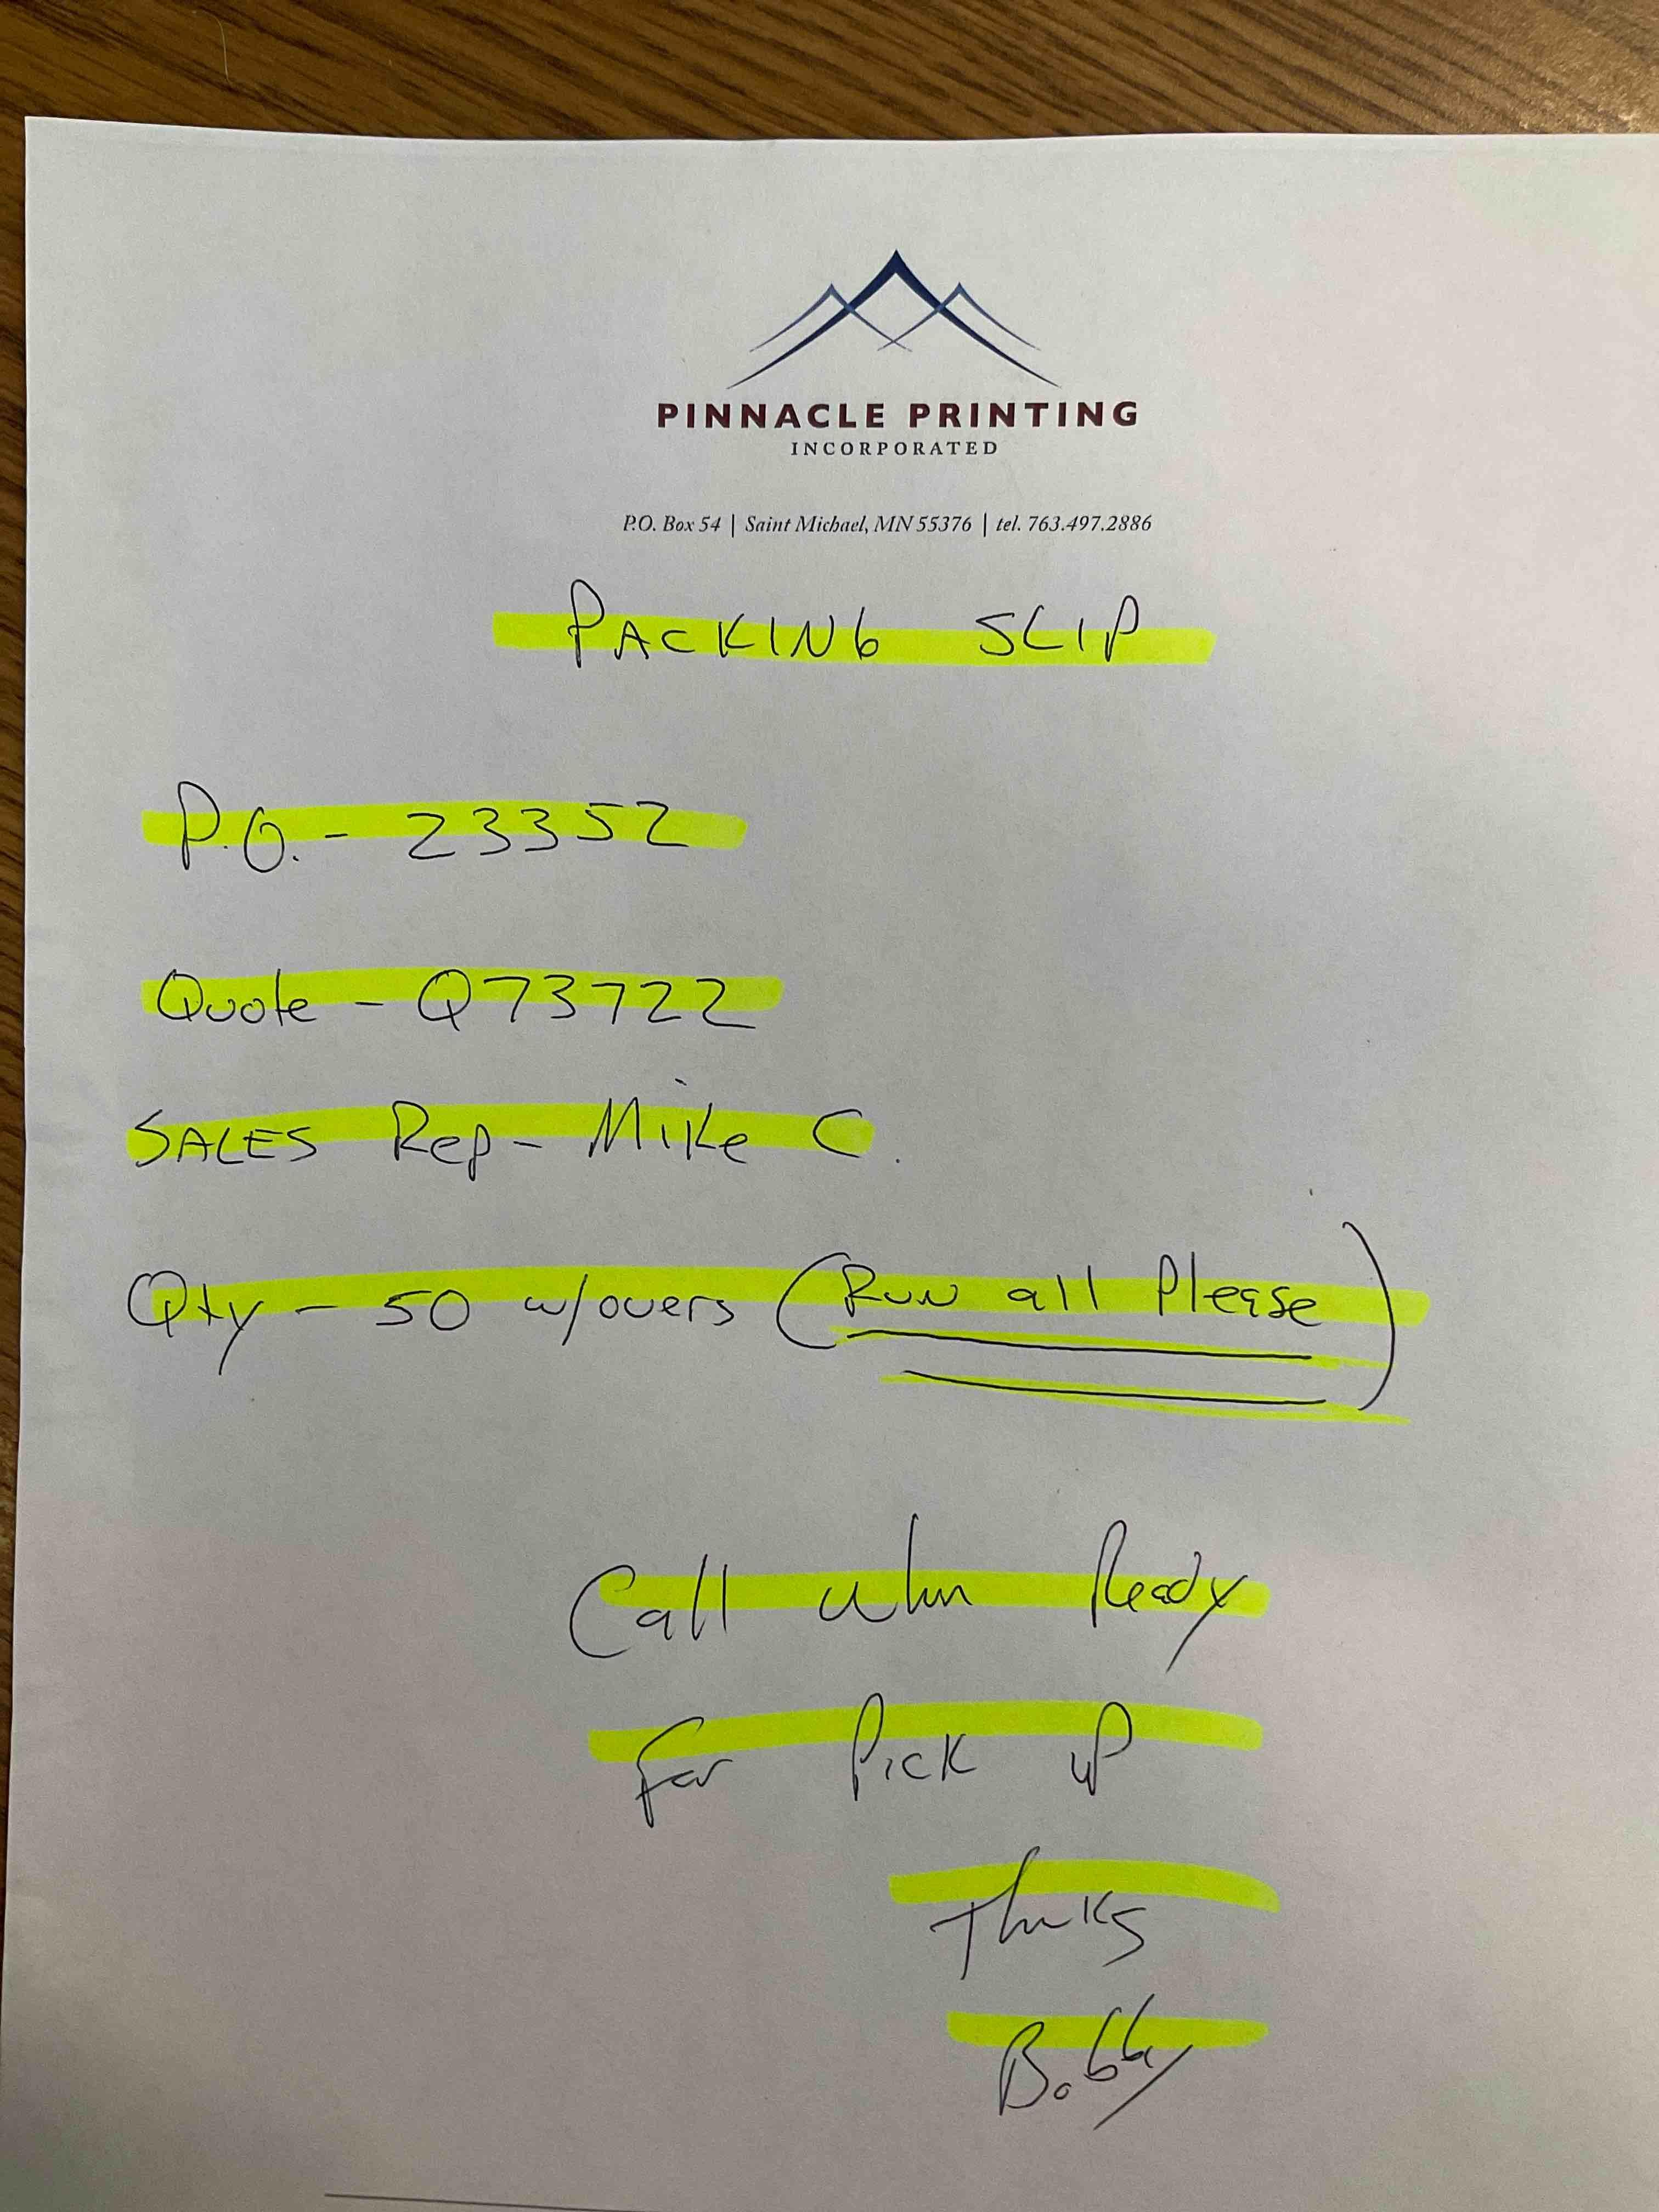 PINNACLE PRINTING
INCORPORATED
P.O. Box 54 | Saint Michael, MN 55376 | tel. 763.497.2886
PACKING SLIP
P.O. - 23352
Quote - Q73722
SALES Rep - Mike C.
Qty - 50 w/overs (Run all Please)
Call when Ready
For Pick up
Thanks
Bobby